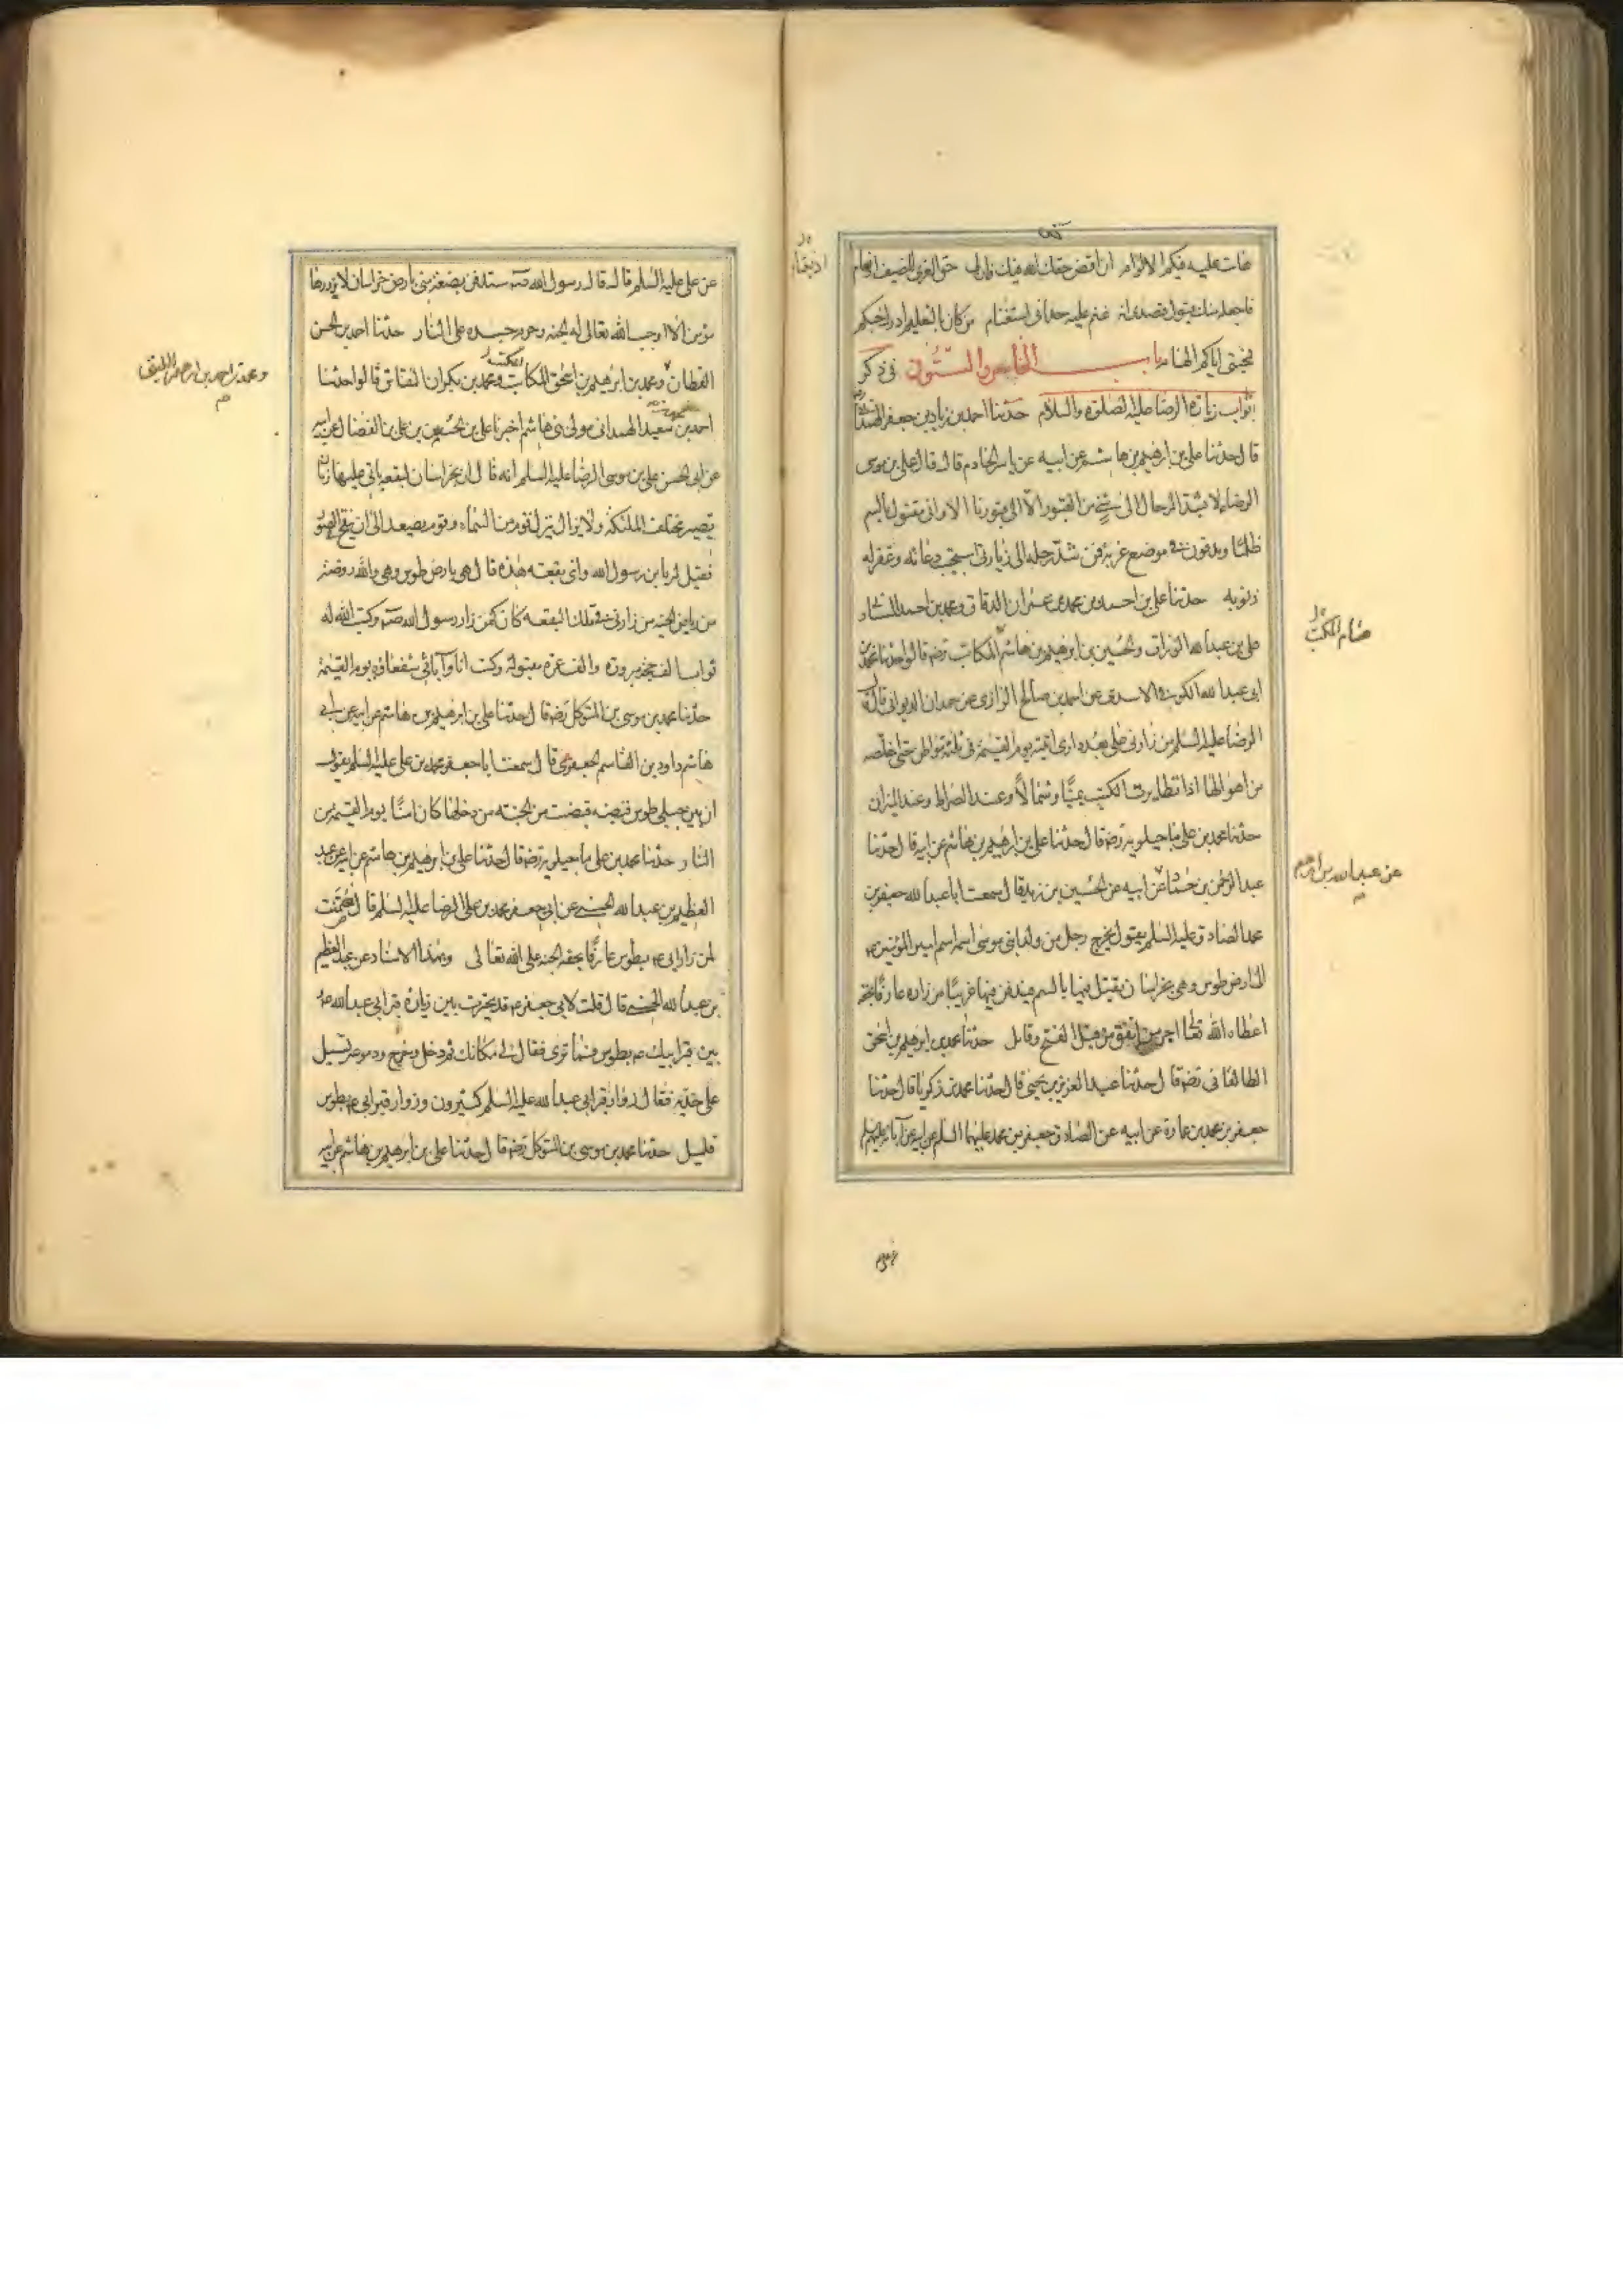 هانت عليه فيكم الالوام ان اقض حقك الله فيك فان لى حق القرى للضيف
فاجعله منك قبول قصدى انه غنم عليه حدانى استغنام من كان بالتعليم ادرك حبكم
فمحبتى اياكم الهام باب الخامس والستون فى ذكر
ثواب زيارة الرضا عليه الصلوة والسلام حدثنا احمد بن زياد بن جعفر الهمدانى
قال حدثنا على بن ابرهيم بن هاشم عن ابيه عن ياسر الخادم قال قال على بن موسى
الرضا لا تشد الرحال الى شئ من القبور الا الى قبورنا الا وانى مقتول بالسم
ظلما ومدفون فى موضع غربة فمن شد رحله الى زيارتى استجيب دعائه وغفر له
ذنوبه حدثنا على بن احمد بن محمد بن عمران الدقاق ومحمد بن احمد السنانى
على بن عبد الله الوراق والحسين بن ابرهيم بن هاشم المكاتب رضه قالوا حدثنا محمد بن
ابى عبد الله الكوفى الاسدى عن احمد بن صالح الرازى عن حمدان الديوانى قال قال
الرضا عليه السلم من زارنى على بعد دارى اتيته يوم القيمة فى ثلثة مواطن حتى اخلصه
من اهوالها اذا تطايرت الكتب يمينا وشمالا وعند الصراط وعند الميزان
حدثنا محمد بن على ماجيلويه رضه قال حدثنا على بن ابرهيم بن هاشم عن ابيه قال حدثنا
عبد الرحمن بن حماد عن ابيه عن الحسين بن زيد قال سمعت ابا عبد الله جعفر بن
محمد الصادق عليه السلم يقول يخرج رجل من ولد ابنى موسى اسمه اسم امير المؤمنين ع
الى ارض طوس وهى بخراسان يقتل فيها بالسم فيدفن فيها غريبا من زاره عارفا بحقه
اعطاه الله تعالى اجر من انفق من قبل الفتح وقاتل حدثنا محمد بن ابرهيم بن اسحق
الطالقانى رضه قال حدثنا عبد العزيز بن يحيى قال حدثنا محمد بن زكريا قال حدثنا
جعفر بن محمد بن عمارة عن ابيه عن الصادق جعفر بن محمد عليهما السلم عن ابيه عن آبائه عليهم السلم
هشام المكتب
عن عبد الله بن ابرهيم
عن على عليه السلم قال قال رسول الله صه ستدفن بضعة منى بارض خراسان لا يزورها
مؤمن الا اوجب الله تعالى له الجنة وحرم جسده على النار حدثنا احمد بن الحسن
القطان ومحمد بن ابرهيم بن اسحق المكاتب ومحمد بن بكران النقاش قالوا حدثنا
احمد بن سعيد الهمدانى مولى بنى هاشم اخبرنا على بن الحسين بن على بن الفضال عن ابيه
عن ابى الحسن على بن موسى الرضا عليه السلم انه قال ان بخراسان لبقعة ياتى عليها زمان
تصير مختلف الملئكة ولا يزال ينزل فوج من السماء وفوج يصعد الى ان ينفخ فى الصور
فقيل له يا بن رسول الله واى بقعة هذه قال هى بارض طوس وهى والله روضة
من رياض الجنة من زارنى فى تلك البقعة كان كمن زار رسول الله صه وكتب الله له
ثواب الف حجة مبرورة والف عمرة مقبولة وكنت انا وآبائى شفعاؤه يوم القيمة
حدثنا محمد بن موسى بن المتوكل رضه قال حدثنا على بن ابرهيم بن هاشم عن ابيه عن ابى
هاشم داود بن القاسم الجعفرى قال سمعت ابا جعفر محمد بن على عليه السلم يقول
ان بين جبلى طوس قبضة قبضت من الجنة من دخلها كان امنا يوم القيمة من
النار حدثنا محمد بن على ماجيلويه رضه قال حدثنا على بن ابرهيم بن هاشم عن ابيه عن عبد
العظيم بن عبد الله الحسنى عن ابى جعفر محمد بن على الرضا عليه السلم قال ضمنت
لمن زار ابى ع بطوس عارفا بحقه الجنة على الله تعالى وبهذا الاسناد عن عبد العظيم
بن عبد الله الحسنى قال قلت لابى جعفر ع قد تحيرت بين زيارة قبر ابى عبد الله ع
بين قبر ابيك ع بطوس فما ترى فقال لى مكانك ثم دخل وخرج ودموعه تسيل
على خديه فقال زوار قبر ابى عبد الله عليه السلم كثيرون وزوار قبر ابى ع بطوس
قليل حدثنا محمد بن موسى بن المتوكل رضه قال حدثنا على بن ابرهيم بن هاشم عن ابيه
ومحمد بن احمد بن ابرهيم الليثى